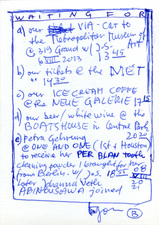 WAITING FOR
a) our VIA-car to
the Metropolitan Museum of
@ 319 Grand w/ J.S. ART
6 VIII 2013 13 45
b) our tickets @ the MET
@ 14 30
c) our ICE CREAM COFFEE
@ RE NEUE GALERIE 17 15
d) our beer/white wine @ the
BOATSHOUSE in Central Park
e) Petra Gehring 20 20
@ ONE AND ONE (1st & Houston
to receive her PER BLAN TOOTH
cleaning powder I brought for her
from Berlin. w/ J.S. 18 55
later Johannes Voth
ABINOUSAWA joined